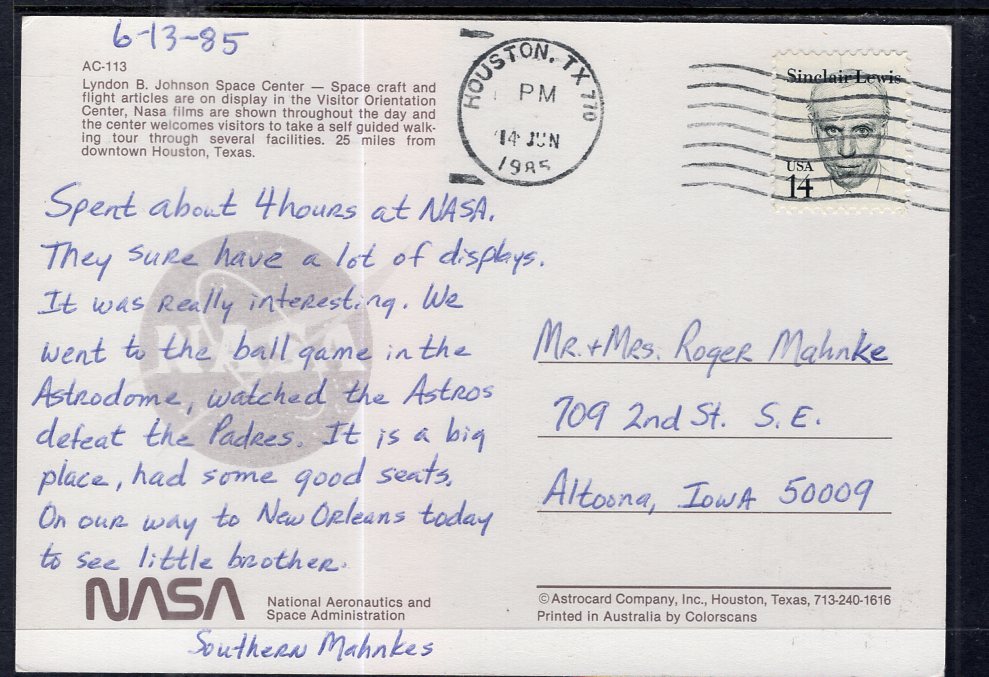 6-13-85
AC-113
Lyndon B. Johnson Space Center — Space craft and
flight articles are on display in the Visitor Orientation
Center, Nasa films are shown throughout the day and
the center welcomes visitors to take a self guided walk-
ing tour through several facilities. 25 miles from
downtown Houston, Texas.
HOUSTON, TX 770
PM
14 JUN
1985
Sinclair Lewis
USA
14
Spent about 4 hours at NASA.
They sure have a lot of displays.
It was really interesting. We
went to the ball game in the
Astrodome, watched the Astros
defeat the Padres. It is a big
place, had some good seats.
On our way to New Orleans today
to see little brother.
NASA
NASA
National Aeronautics and
Space Administration
Southern Mahnkes
Mr. + Mrs. Roger Mahnke
709 2nd St. S.E.
Altoona, Iowa 50009
© Astrocard Company, Inc., Houston, Texas, 713-240-1616
Printed in Australia by Colorscans